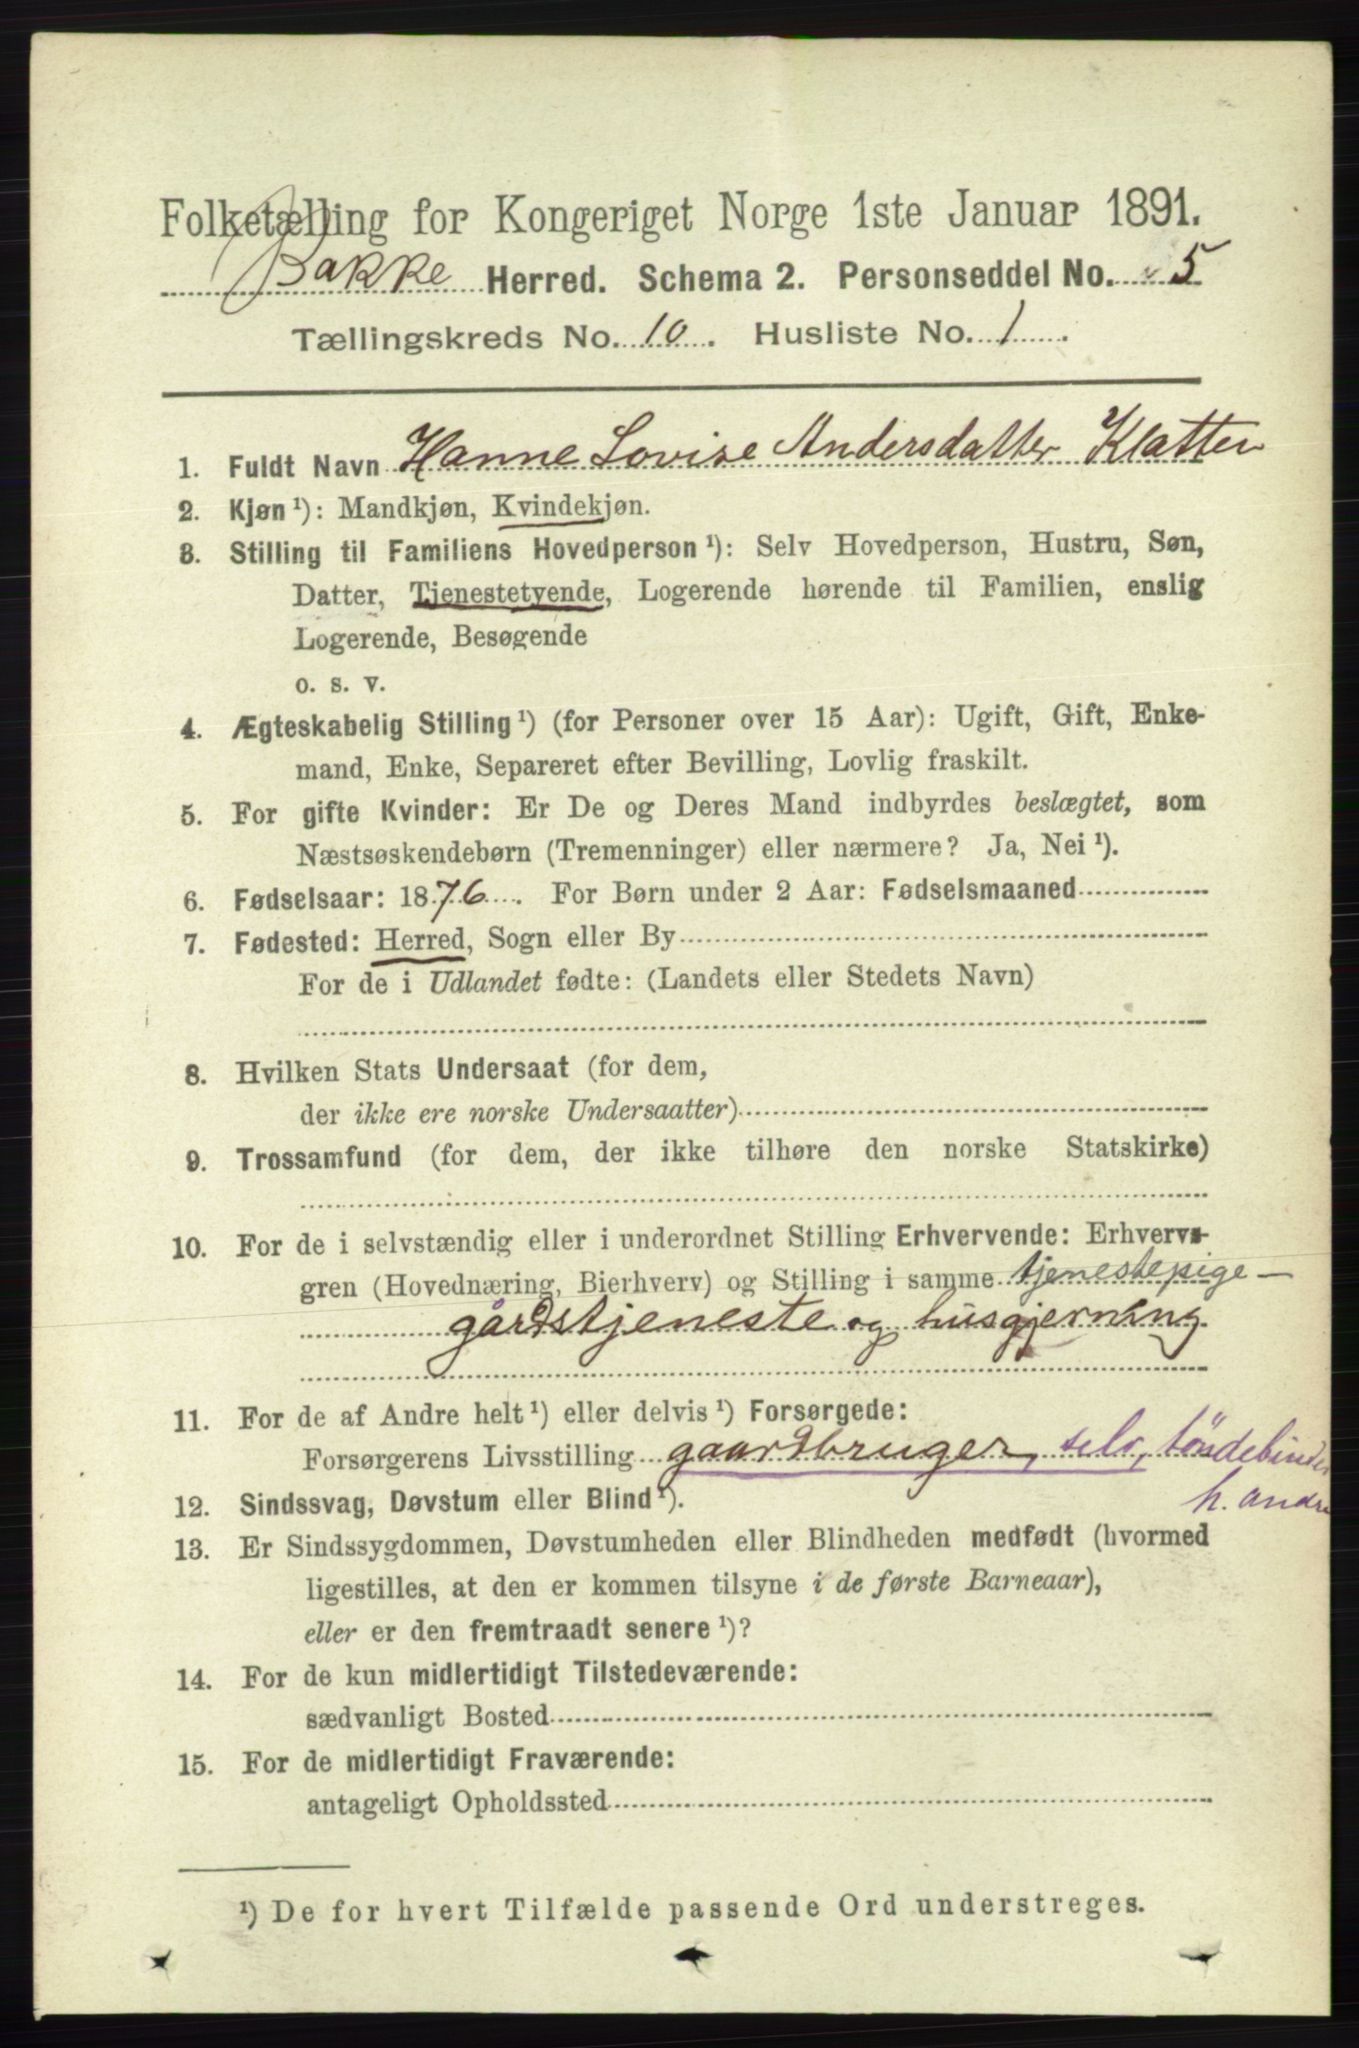 Folketælling for Kongeriget Norge 1ste Januar 1891.
Bakke Herred. Schema 2. Personseddel No. 5
Tællingskreds No. 10. Husliste No. 1.
1. Fuldt Navn Hanne Lovise Andersdatter Klatten
2. Kjøn ¹): Mandkjøn, Kvindekjøn.
3. Stilling til Familiens Hovedperson ¹): Selv Hovedperson, Hustru, Søn,
Datter, Tjenestetyende, Logerende hørende til Familien, enslig
Logerende, Besøgende
o. s. v.
4. Ægteskabelig Stilling ¹) (for Personer over 15 Aar): Ugift, Gift, Enke-
mand, Enke, Separeret efter Bevilling, Lovlig fraskilt.
5. For gifte Kvinder: Er De og Deres Mand indbyrdes beslægtet, som
Næstsøskendebørn (Tremenninger) eller nærmere? Ja, Nei ¹).
6. Fødselsaar: 1876. For Børn under 2 Aar: Fødselsmaaned
7. Fødested: Herred, Sogn eller By
For de i Udlandet fødte: (Landets eller Stedets Navn)
8. Hvilken Stats Undersaat (for dem,
der ikke ere norske Undersaatter)
9. Trossamfund (for dem, der ikke tilhøre den norske Statskirke)
10. For de i selvstændig eller i underordnet Stilling Erhvervende: Erhvervs-
gren (Hovednæring, Bierhverv) og Stilling i samme tjenestepige –
gårdstjeneste og husgjerning
11. For de af Andre helt ¹) eller delvis ¹) Forsørgede:
Forsørgerens Livsstilling gaardbruger, selv, töndebinder
h. andre
12. Sindssvag, Døvstum eller Blind ¹).
13. Er Sindssygdommen, Døvstumheden eller Blindheden medfødt (hvormed
ligestilles, at den er kommen tilsyne i de første Barneaar),
eller er den fremtraadt senere ¹)?
14. For de kun midlertidigt Tilstedeværende:
sædvanligt Bosted
15. For de midlertidigt Fraværende:
antageligt Opholdssted
¹) De for hvert Tilfælde passende Ord understreges.